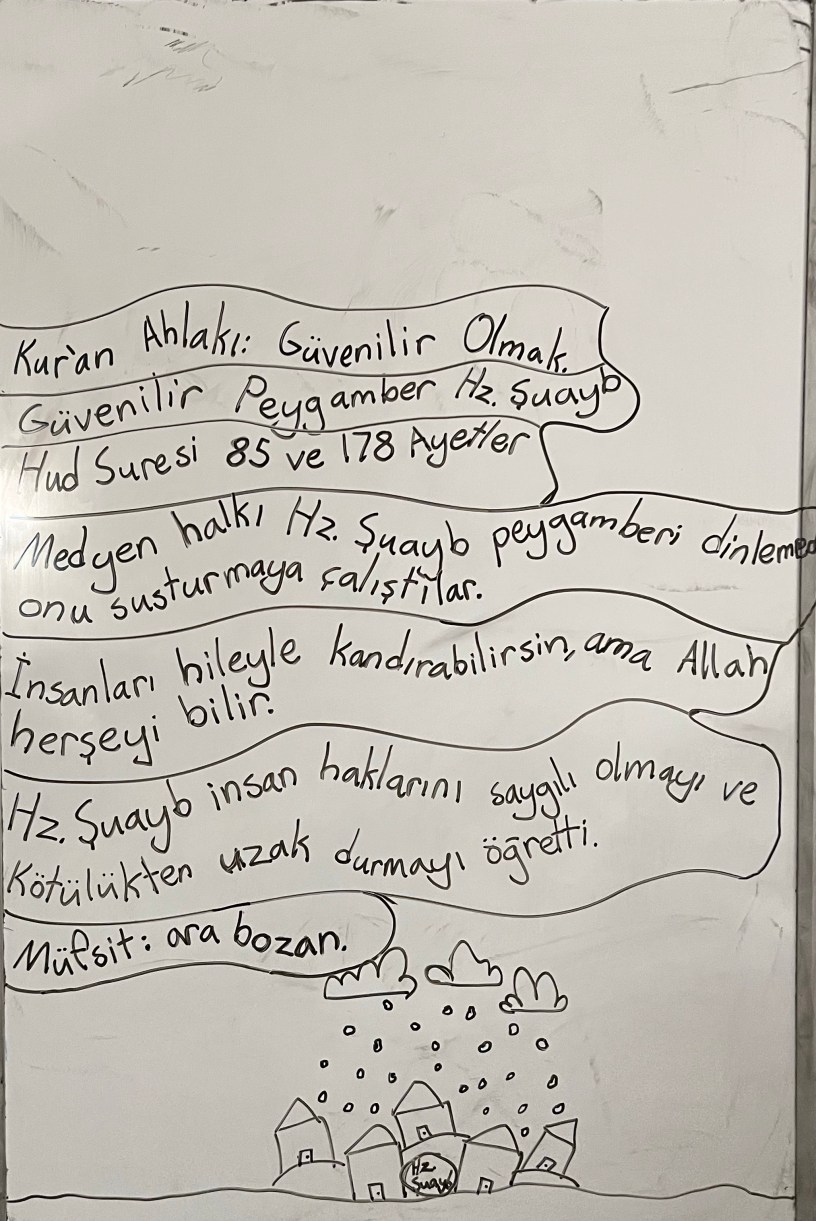 Kur'an Ahlakı: Güvenilir Olmak.
Güvenilir Peygamber Hz. Şuayb
Hud Suresi 85 ve 178 Ayetler
Medyen halkı Hz. Şuayb peygamberi dinlemed
onu susturmaya çalıştılar.
İnsanları hileyle kandırabilirsin, ama Allah
herşeyi bilir.
Hz. Şuayb insan haklarını saygılı olmayı ve
Kötülükten uzak durmayı öğretti.
Müfsit: ara bozan.
Hz
Şuayb